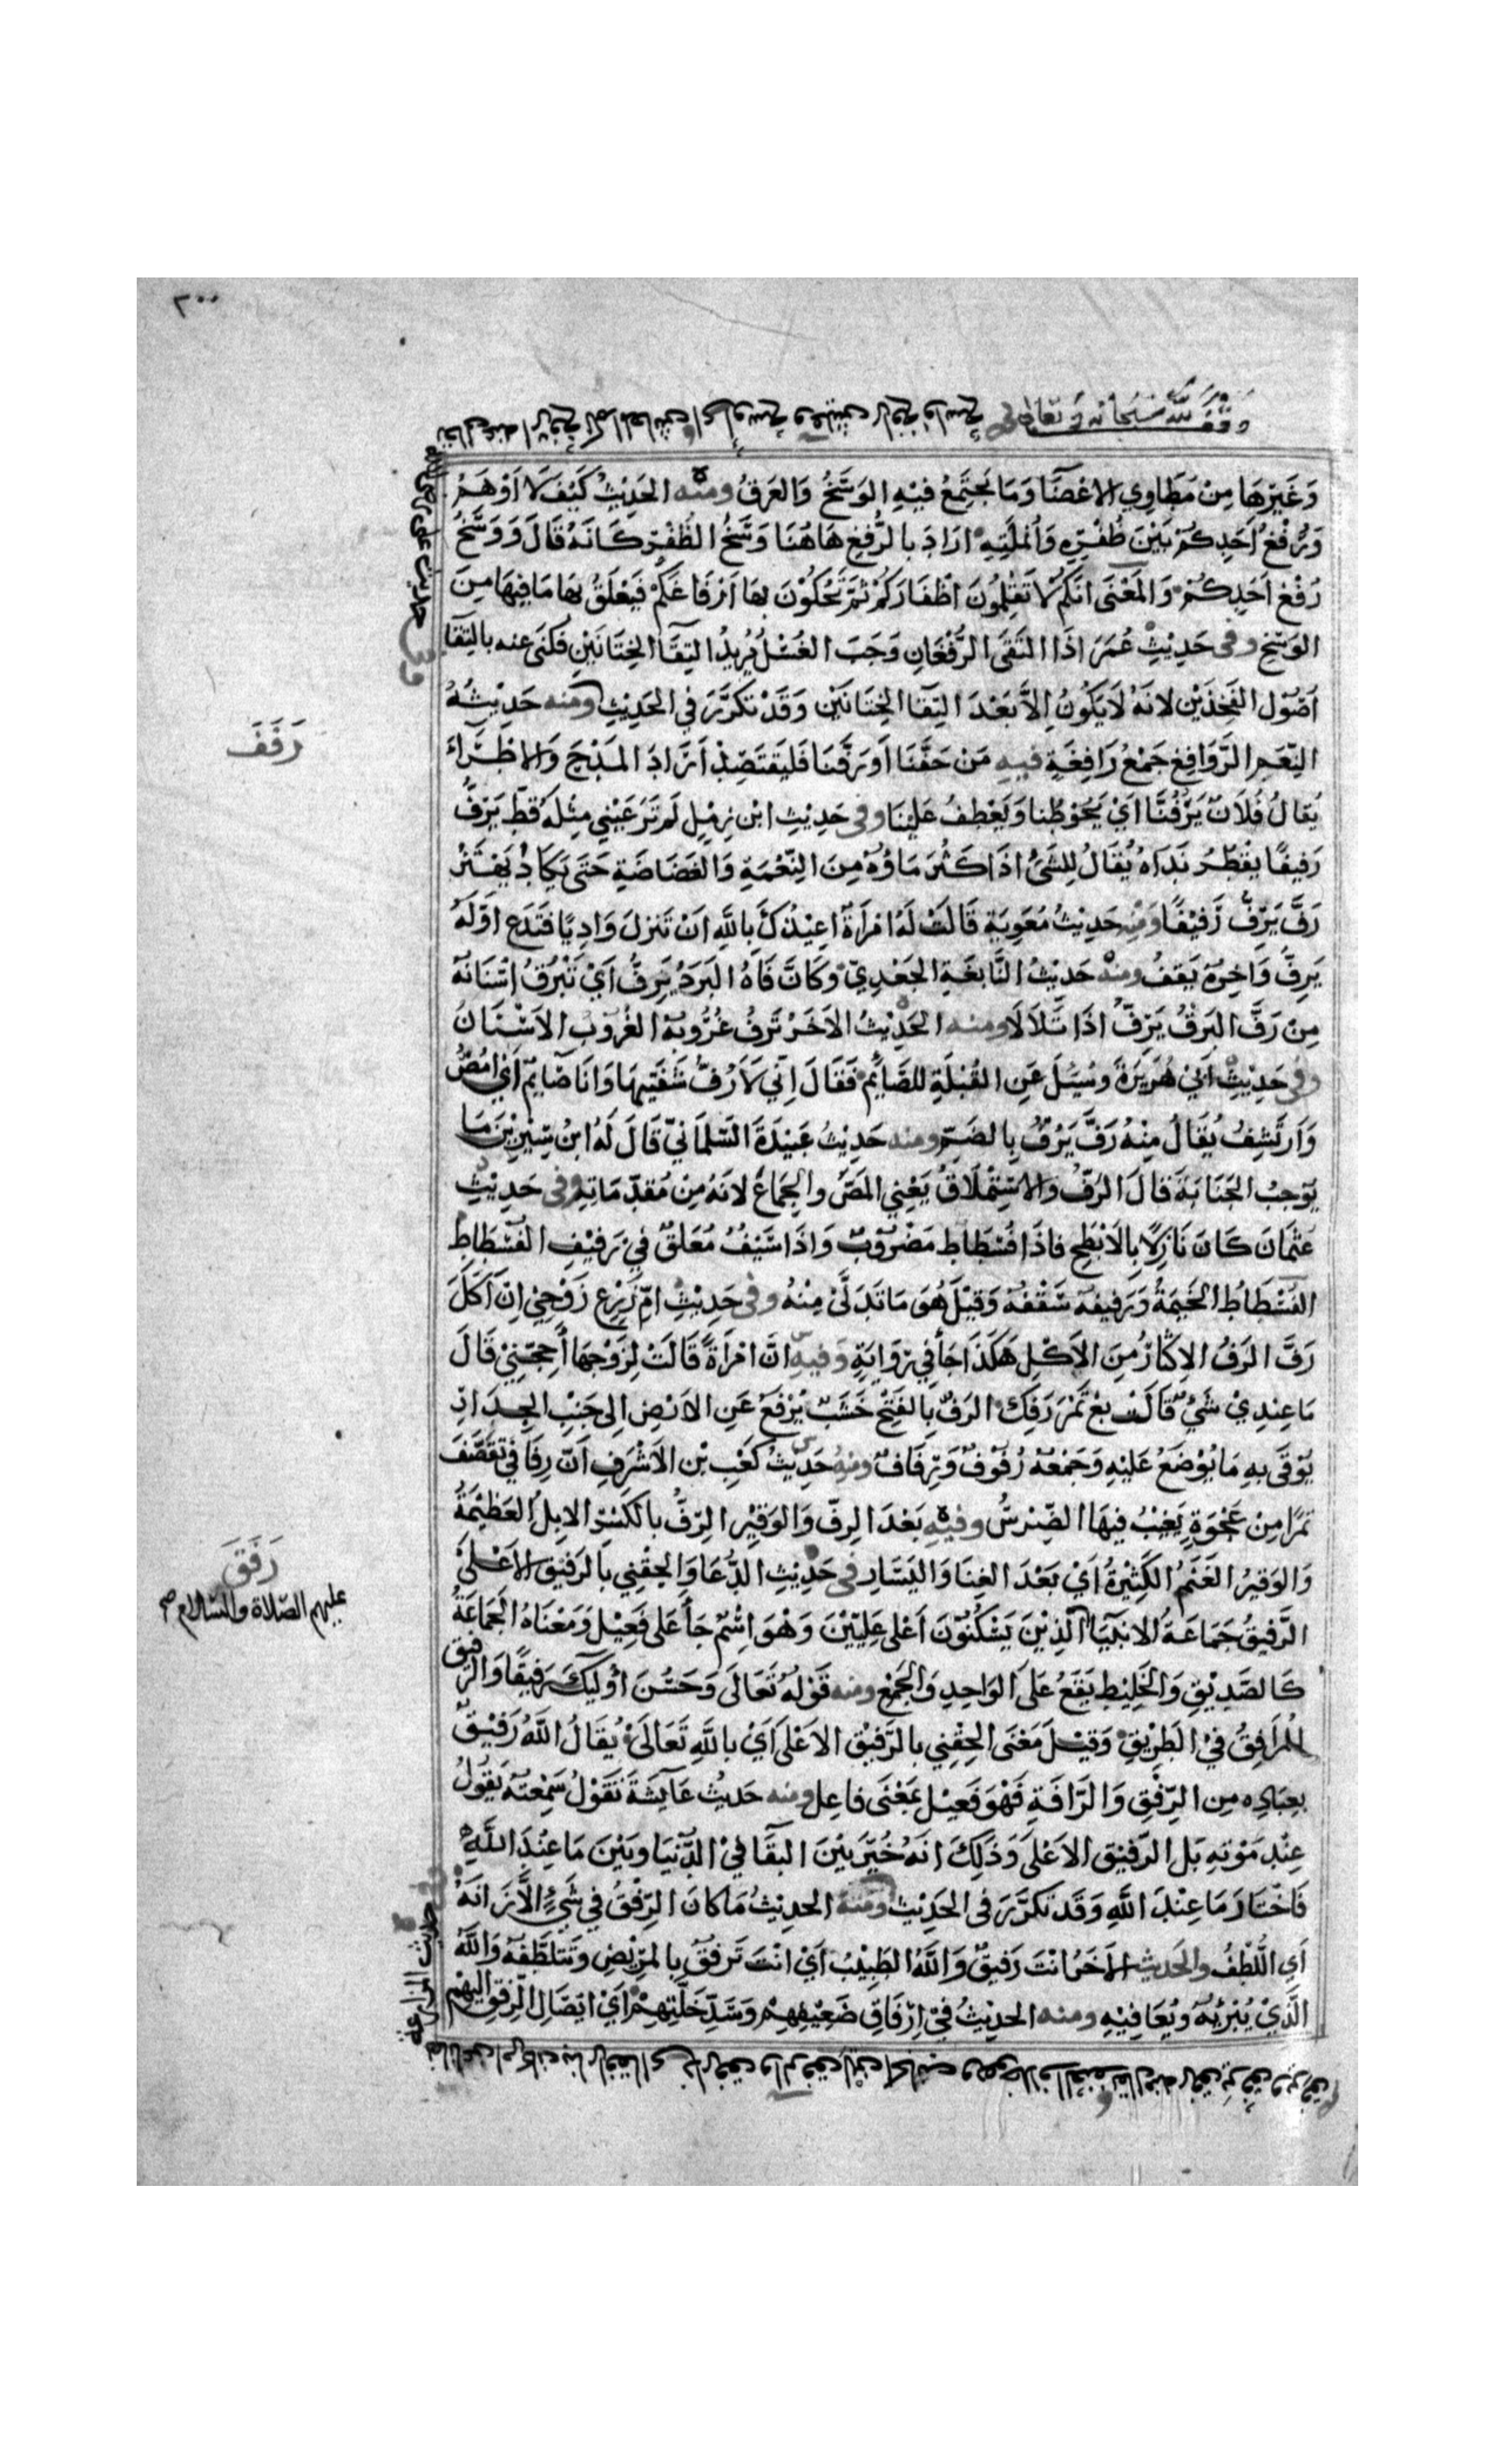 ٢٠٠
وقف لله سبحانه وتعالى
وَغَيْرِهَا مِنْ مَطَاوِي الاعْضَا وَمَا يَجْتَمِعُ فيْهِ الوَسَخُ وَالعَرَقُ ومنْه الحَدِيْثُ كَيْفَ لَا اَوْهَمُ
وَرُفْغُ اَحَدِكُمْ بَيْنَ ظُفْرِهِ وَاُنْمُلَتِهِ ارَادَ بالرُّفْغِ هَاهُنَا وَسَخُ الظُّفْرِ كَانَهُ قَالَ وَوَسَخُ
رُفْغِ اَحَدِكُمْ وَالمَعْنَى انَكُمْ لَا تَقْلِمُونَ اظْفَارَكُمْ ثُمَّ تَحُكُوْنَ بهَا اَرْفَاغَكُمْ فَيَعْلَقُ بهَا مَا فِيهَا مِنَ
الوَسَخِ وفى حَدِيْثِ عُمَرَ اذَا التَقَى الرُّفْغَانِ وَجَبَ الغُسْلُ يُرِيدُ التِقَا الخِتَانَيْنِ فَكَنَى عنه بالتِقَا
اصُوْلِ الفَخِذَيْن لانَهُ لَا يَكُونُ اِلاَّ بَعْدَ التِقَا الخِتَانَيْن وَقَدْ تَكَرَّرَ في الحَدِيْثِ ومنه حَدِيْثُهُ
النِّعَمِ الرَّوَافِغِ جَمْعُ رَافِغَةٍ فيهِ مَنْ حَفَّنَا اَوْ رَفَّنَا فَليَقْتَصِدْ اَرَادَ المَدْحَ وَالاطْرَاءَ
يُقَالُ فُلَانٌ يَرُفُّنَا اَيْ يَحُوْطُنا وَيَعْطِفُ عَلَيْنَا وفى حَدِيْثِ ابْنِ زِمْلٍ لَمْ تَرَ عَيْنِي مِثْلَهُ قَطّ يَرِفُّ
رَفِيفًا يقْطُرُ نَدَاهُ يُقَالُ لِلشَيْ اذَا كَثُرَ مَاوُهُ مِنَ النِّعْمَةِ وَالغَضَاضَةِ حَتَى يَكَادُ يَهْتَزُّ
رَفَّ يَرِفُّ رَفِيْفًا ومِنْه حَدِيْثُ مُعَوِيَةَ قَالَتْ لَهُ امْرَأَةٌ اعِيْذُكَ بِاللَّهِ انْ تَنْزِلَ وَادِيًا فتَدَع اَوّلَهُ
يَرِفُّ وَاخِرُهُ يَقِفُ ومنْه حَدِيْثُ النَّابِغَةِ الجَعْدِيّ وَكَانَّ فَاهُ البَرَدُ يَرِفُّ اَيْ تَبْرُقُ اسْنَانُهُ
مِنْ رَفَّ البَرْقُ يَرِفُّ اذَا تَلَالَا ومنه الحَدِيْثُ الاخَرُ تَرِفُّ غُرُوْبُهُ الغُرُوْبُ الاَسْنَانُ
وفى حَدِيْثِ اَبِيْ هُرَيْرَةَ وسُئِلَ عَنِ القُبْلَةِ للصَّائِمِ فَقَالَ اِنِّي لَاَرُفُّ شَفَتَيهَا وَانَا صَايِمٌ اَيْ امُصُّ
وَارْتَشِفُ يُقَالُ مِنْهُ رَفَّ يَرُفُّ بِالضَمّ ومنه حَدِيْثُ عَبِيْدَةَ السَّلمَانيّ قَالَ لَهُ ابنُ سِيْرِيْنَ مَا
يُوْجِبُ الجَنَابَةَ قَالَ الرَفُّ وَالاسْتِمْلَاقُ يَعْنِي المَصّ والجِمَاعَ لانَهُ مِنْ مُقَدِّمَاتِهِ وفى حَدِيْثِ
عُثْمَانَ كَانَ نَازِلًا بِالاَبْطَحِ فاذَا فُسْطَاطٌ مَضْرُوْبٌ وَاذَا سَيْفٌ مُعَلقٌ فِيْ رَفِيْفِ الفُسْطَاطِ
الفُسْطَاطُ الخَيْمَةُ وَرَفِيفُه سَقْفُهُ وَقِيْلَ هُوَ مَا تَدَلَّى مِنْهُ وفى حَدِيْثِ امِّ زَرْعٍ زَوْجِيْ اِنْ اَكَلَ
رَفَّ الرَفُّ الاِكثَارُ مِنَ الاَكْلِ هَكَذَا جَا في رِوَايَةٍ وَفيهِ انَّ امْرَأَةً قَالَتْ لِزَوْجِهَا اَحِجَّنِيْ قَالَ
مَا عِنْدِيْ شَيْءٌ قَالَتْ بِعْ تَمْرَ رَفِكَ الرَفُّ بِالفَتْحِ خَشَبٌ يُرْفَعُ عَنِ الارْضِ الِى جَنْبِ الجِدَارِ
يُوْقَى بِهِ مَا يُوْضَعُ عَلَيْهِ وَجَمْعُهُ رُفُوْفٌ وَرِفَافٌ ومنْهُ حَدِيْثُ كَعْبِ بْنِ الاَشْرَفِ اَنّ رِفَافِيْ تَقَصَّفُ
تَمْرًا مِن عَجْوَةٍ يَغِيْبُ فِيهَا الضِّرْسُ وفيْهِ بَعْدَ الرِفِّ وَالوَقِيْرِ الرِّفُّ بالكَسْرِ الابِلُ العَظِيْمَةُ
وَالوَقِيْرُ الغَنَمُ الكَثِيْرَةُ اَيْ بَعْدَ الغِنَا وَاليَسَارِ فى حَدِيْثِ الدُّعَا وَالحِقْنِي بالرَفيْقِ الاَعْلَى
الرَّفِيْقُ جَمَاعَةُ الانبِيَا الَّذِيْنَ يَسْكُنُوْنَ اَعْلى عِلِيّيْنَ وَهْوَ اسْمٌ جَا عَلَى فَعِيْلٍ وَمَعْنَاهُ الجَمَاعَةُ
كَالصَّدِيْقِ وَالخَلِيْطِ يَقَعُ عَلَى الوَاحِدِ وَالجَمْعِ ومنه قَوْلُهُ تَعَالَى وَحَسُنَ أُولَئِكَ رَفِيْقًا وَالرَّفِيْقُ
المُرَافِقُ فيْ الطَرِيْقِ وَقِيْلَ مَعْنَى الحِقْنِي بالرَفِيْقِ الاَعْلَى اَيْ باللَّهِ تَعَالَى يُقَالُ اللَّهُ رَفِيْقٌ
بِعِبَادِهِ مِن الرِّفْقِ وَالرَّافَةِ فَهْوَ فَعِيْلٌ بمَعْنَى فاعِلٍ ومنه حَديْثُ عَايشَةَ تَقُوْلُ سَمِعْتُهُ يَقُوْلُ
عِنْدَ مَوْتِهِ بَلِ الرَّفيْقِ الاَعْلَى وَذَلِكَ انَهُ خُيِّرَ بَيْنَ البَقَا فِيْ الدُّنْيَا وبَيْنَ مَا عِنْدَ اللَّهِ
فَاخْتَارَ مَا عِنْدَ اللَّهِ وَقَد تَكَرَّرَ فى الحَدِيْثِ ومنهُ الحديْثُ مَا كَانَ الرِّفْقُ في شَيءٍ الاَّ زَانَهُ
اَي اللُّطْفُ والحَديث الاَخَرُ انْتَ رَفِيقٌ وَاللَّهُ الطَبِيْبُ اَيْ انْتَ تَرْفُقُ بِالمَرِيْضِ وَتَتَلطَّفُهُ وَاللَّهُ
الَّذِيْ يُبْرِئُهُ وَيُعَافِيْهِ ومنه الحدِيْثُ فيْ اِرْفَاقِ ضَعِيْفِهِمْ وَسَدِّ خَلَّتِهِمْ اَيْ ايْصَالِ الرِّفْقِ اليْهِمْ
رَفَفَ
رَفَقَ
عليهم الصّلاة والسّلام صح